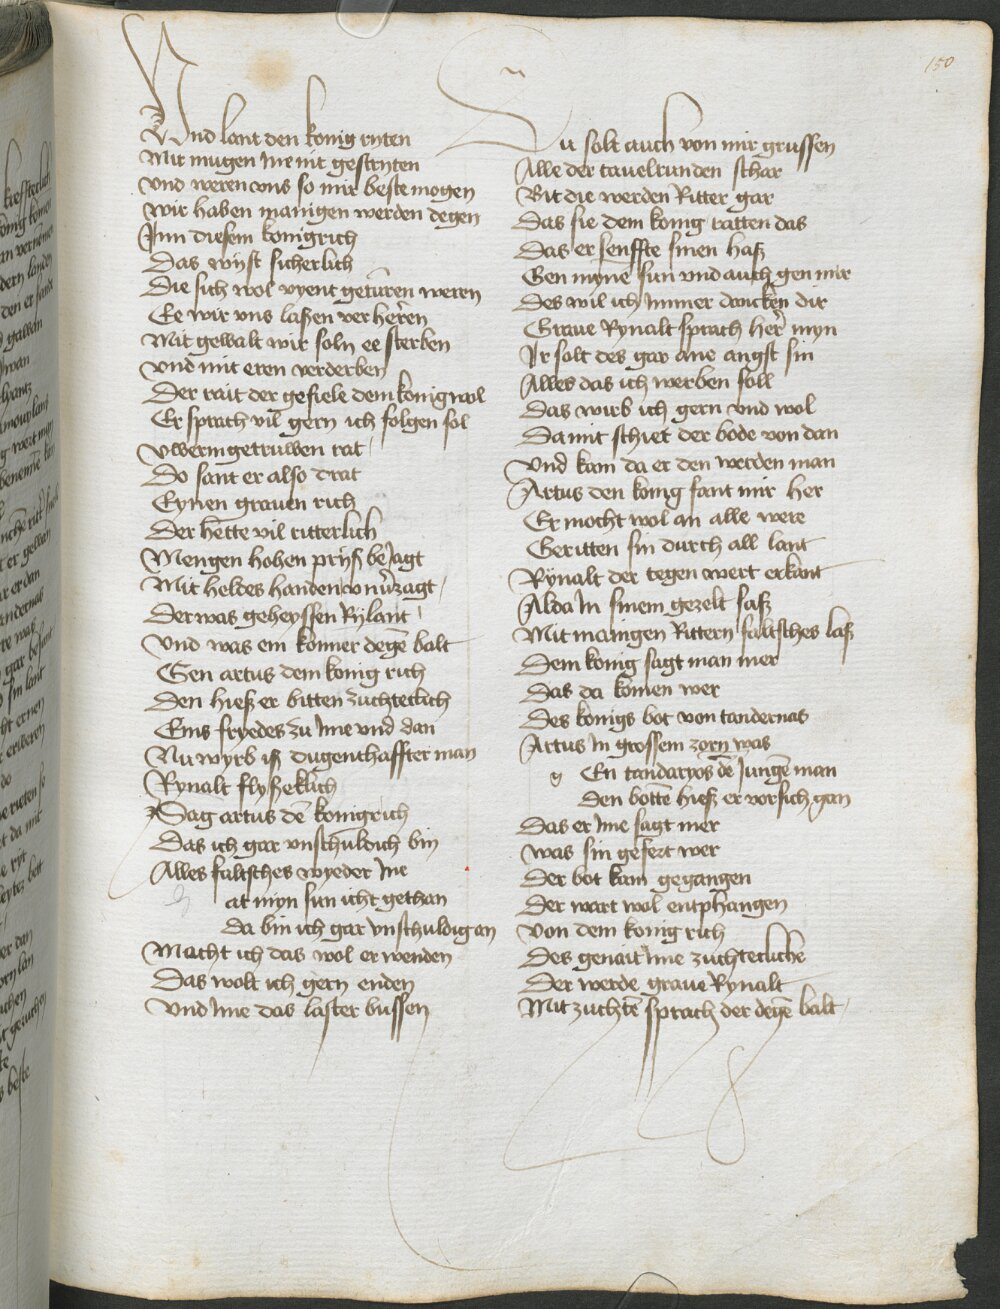 150
Vnd lant den konig ryten
Mit mugen Ime nit gestryten
vnd weren vns so mir beste mogen
wir haben manigen werden degen
Inn diesem konigrich
Das wyst sicherlich
Die sich wol vyent getúren weren
Ee wir vns laßen verheren
Mit gewalt wir soln ee sterben
vnd mit eren verderben
Der rait der gefiele dem konig wol
Er sprach vil gern ich folgen sol
vwerm getruwen rat
Do sant er also drat
Eynen grauen rich
Der hette vil ritterlich
Mengen hohen priß beJagt
Mit heldes handen vnuzagt
Der was geheyssen Rylant
vnd was ein konner degē balt
Gen artus dem konig rich
Den hieß er bitten zuchteclich
Eins fryedes zu Ime vnd dan
Nu wyrb iß dugenthaffter man
Rynalt flyßeklich
Sag artus dē konigrich
Das ich gar vnschuldich bin
Alles faltsches wyeder Ime
at myn sun icht gethan
da bin ich gar vnschuldig an
Macht ich das wol erwenden
Das wolt ich gern enden
vnd Ime das laster bussen
Du solt auch von mir grussen
Alle der tauelrunden schar
Bit die werden Ritter gar
Das sie dem konig ratten das
Das er senffte sinen haß
Gen myne sun vnd auch gen mir
Des wil ich Immer dancken dir
Graue Rynalt sprach her myn
Ir solt des gar ane angst sin
Alles das ich werben soll
Das wirb ich gern vnd wol
Da mit schiet der bode von dan
vnd kam da er den werden man
Artus den konig fant mir her
Er mocht wol an alle were
Geritten sin durch all lant
Rynalt der tegen wert erkant
Alda In sinem gezelt saß
Mit manigen Rittern faltsches laß
Dem konig sagt man mer
Das da komen wer
Des konigs bot von tandernas
Artus In grossem zorn was
g En tandaryos dē Jungē man
den botte hieß er vor sich gan
Das er Ime sagt mer
was sin gefert wer
Der bot kam gegangen
Der wart wol entphangen
von dem konig rich
Des genait Ime zuchtecliche
Der werde graue Rynalt
Mit zuchtē sprach der degē balt